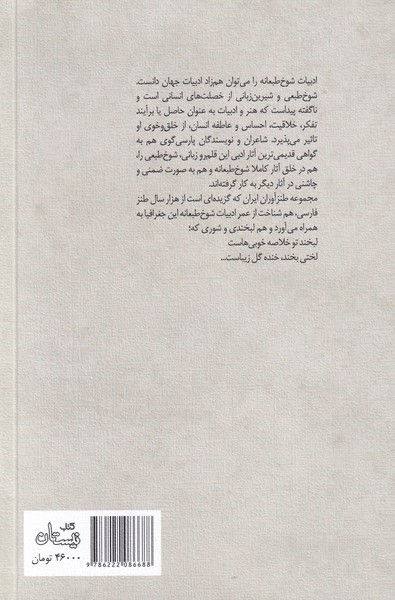 ادبیات شوخ‌طبعانه را می‌توان هم‌زاد ادبیات جهان دانست.
شوخ‌طبعی و شیرین‌زبانی از خصلت‌های انسانی است و
ناگفته پیداست که هنر و ادبیات به عنوان حاصل یا برآیند
تفکر، خلاقیت، احساس و عاطفه انسان، از خلق‌وخوی او
تاثیر می‌پذیرد. شاعران و نویسندگان پارسی‌گوی هم به
گواهی قدیمی‌ترین آثار ادبی این قلم‌رو زبانی، شوخ‌طبعی را،
هم در خلق آثار کاملا شوخ‌طبعانه و هم به صورت ضمنی و
چاشنی در آثار دیگر به کار گرفته‌اند.
مجموعه طنزآوران ایران که گزیده‌ای است از هزار سال طنز
فارسی، هم شناخت از عمر ادبیات شوخ‌طبعانه این جغرافیا به
همراه می‌آورد و هم لبخندی و شوری که؛
لبخند تو خلاصه خوبی‌هاست
لختی بخند، خنده گل زیباست...
کتاب
نیستان
۴۶۰۰۰ تومان
9 786222 086688